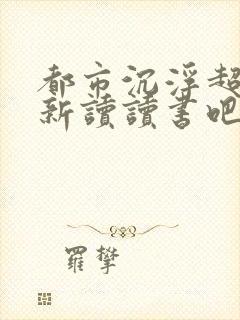 都市沉浮超
新讀讀書吧
羅攀